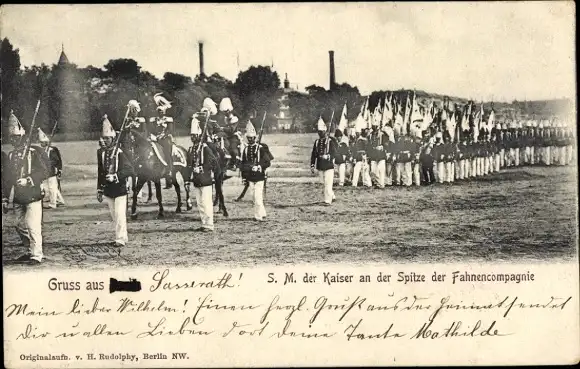 Gruss aus Sasserath! S. M. der Kaiser an der Spitze der Fahnencompagnie
Mein lieber Wilhelm! Einen hrzl. Gruß aus der Heimat sendet
Dir u allen Lieben dort deine Tante Mathilde
Originalaufn. v. H. Rudolphy, Berlin NW.